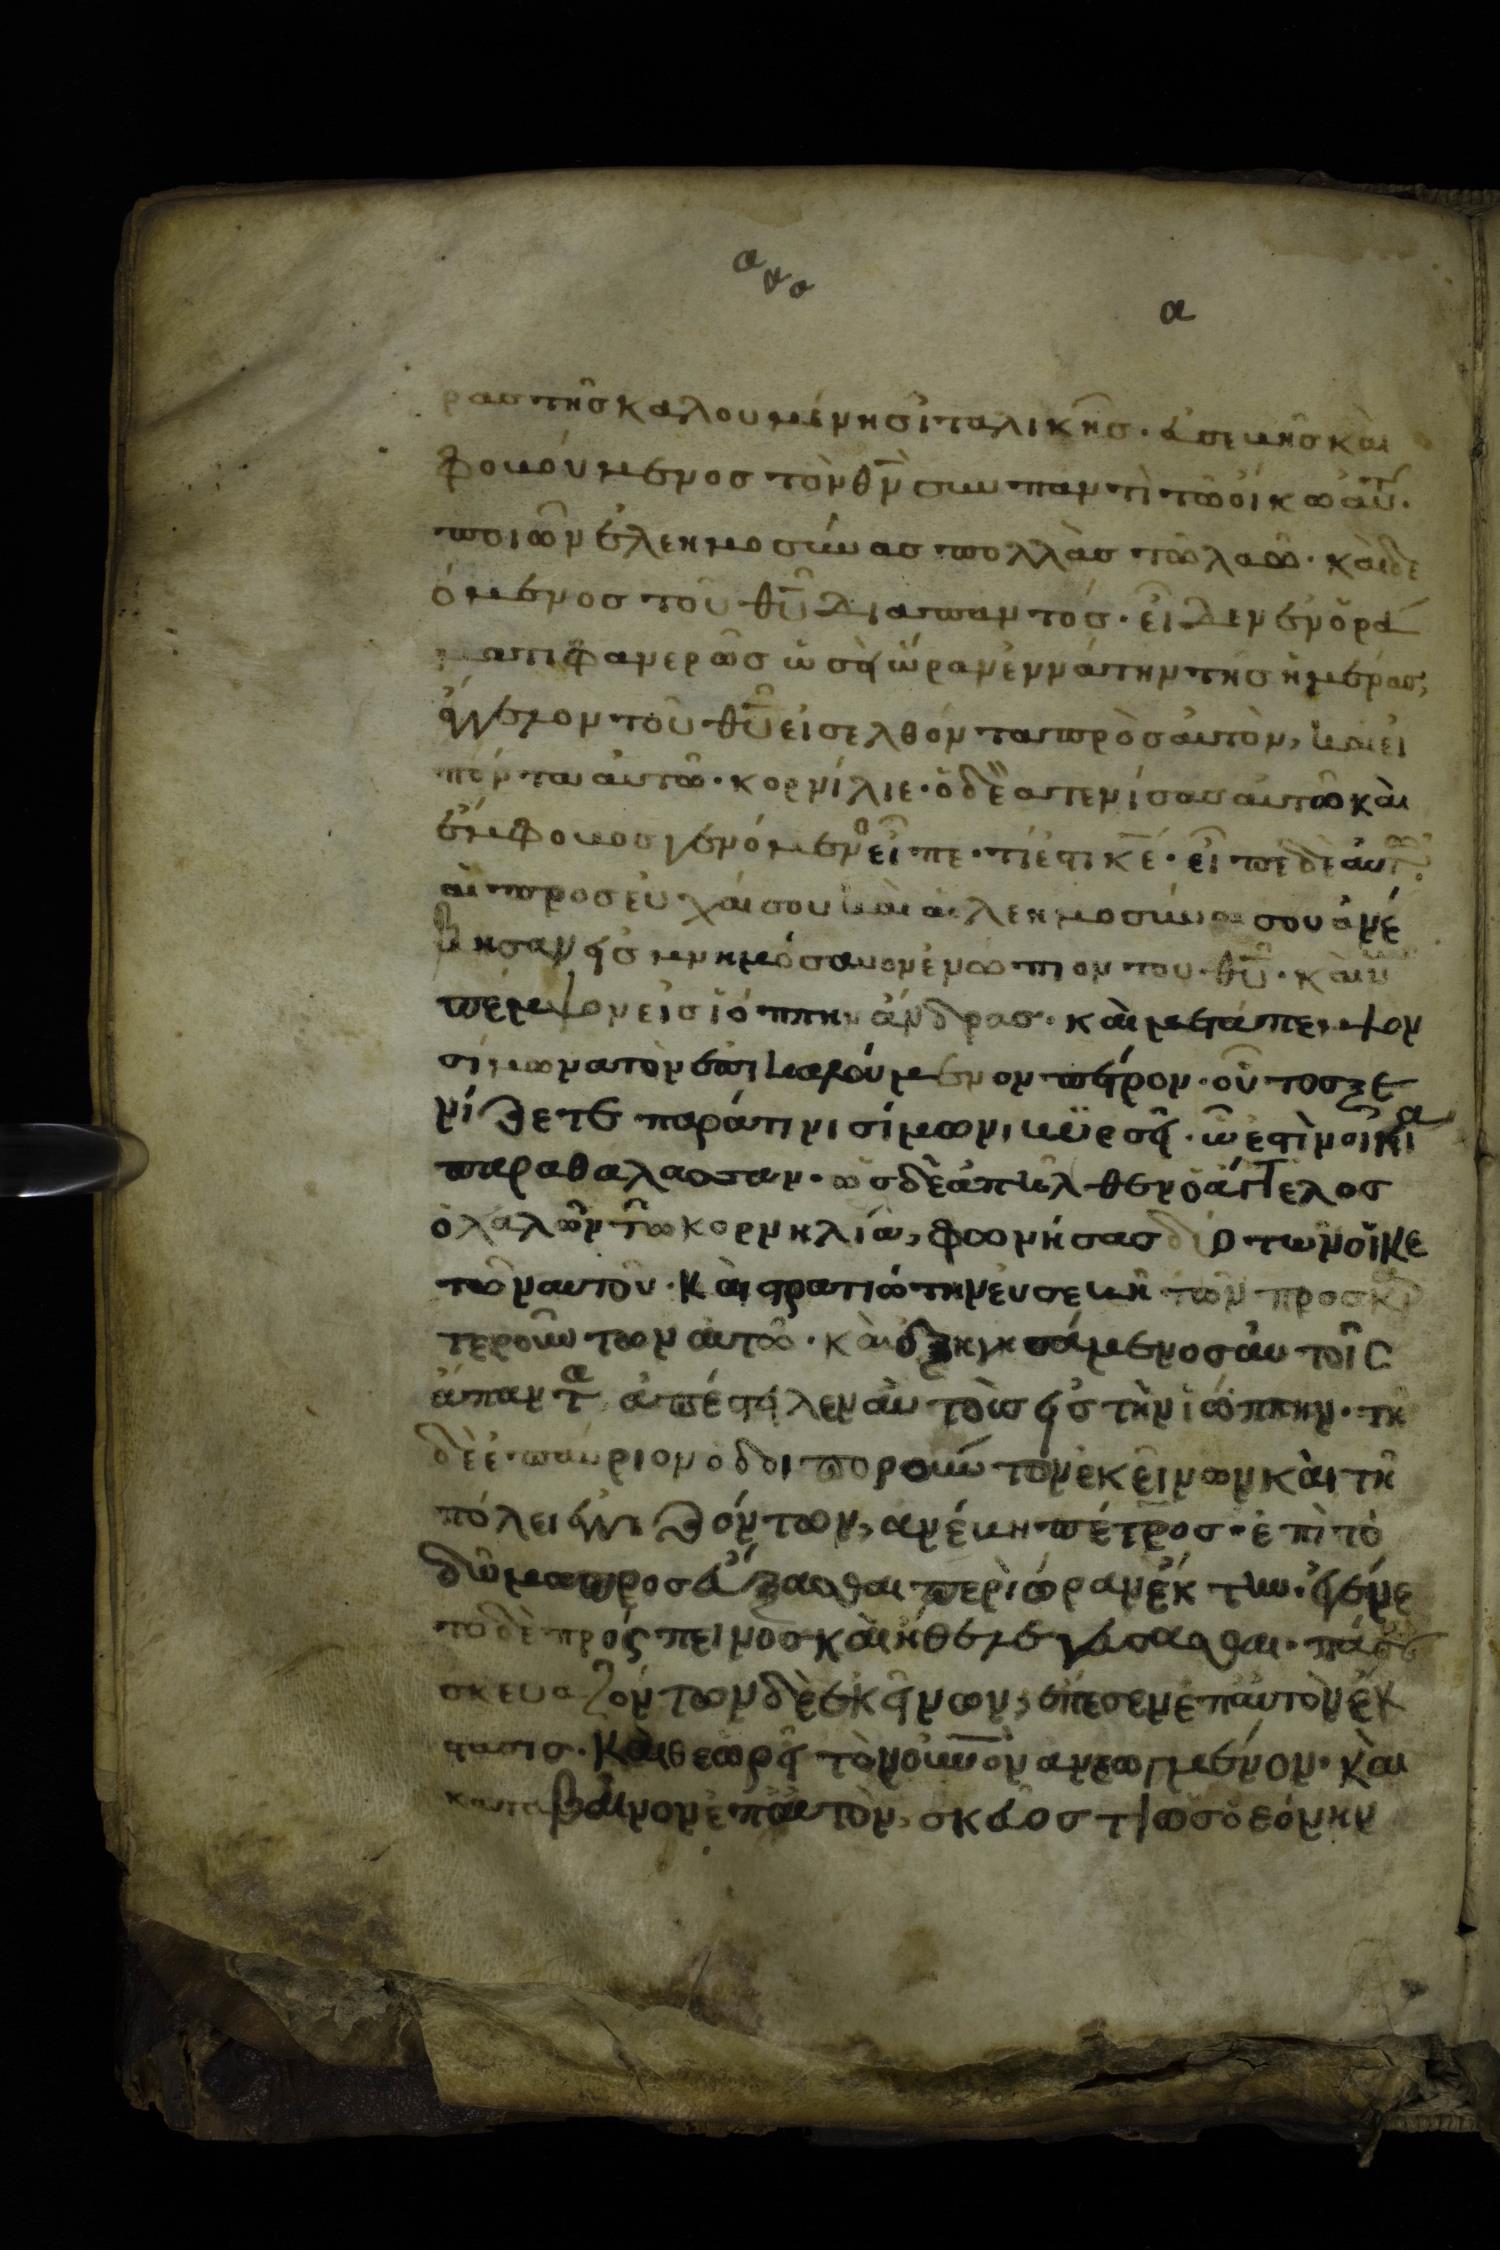 α
ρας τῆς καλουμένης ἰταλικῆς· εὐσεβὴς καὶ
φοβούμενος τὸν θν̄ σὺν παντὶ τῶ οἴκω αὐτ·
ποιῶν ἐλεημοσύνας πολλὰς τῶ λαῶ· καὶ δε
όμενος τοῦ θῡ διαπαντός· εἶδεν ἐν ὁρά
ματι φανερῶς ὡσεὶ ὥραν ἐννάτην τῆς ἡμέρας,
ἄγγελον τοῦ θῡ εἰσελθόντα πρὸς αὐτὸν, καὶ εἰ
πόντα αὐτῶ· κορνίλιε· ὁ δὲ ἀτενίσας αὐτῶ καὶ
ἔμφοβος γενόμενο εἶπε· τί ἐστι κε̄· εἶπε δὲ αὐτῶ·
αἱ προσευχαί σου καὶ αἱ ἐλεημοσύναι σου ἀνέ
βησαν εἰς μνημόσυνον ἐνώπιον του θῡ· καὶ νῦν
πέμψον εἰς ἰόππην ἄνδρας· καὶ μετάπεμψον
σίμωνα τὸν ἐπικαλούμενον πέτρον· οὗτος ξε
νίζετε παρά τινι σίμωνι βυρσεῖ· ὧ ἐστὶν οἰκία
παρα θαλασσαν· ὡς δὲ ἀπῆλθεν ὁ ἄγγελος
ὁ λαλῶν τῶ κορνηλίω, φωνήσας δύο τῶν οἰκε
τῶν αυτοῦ· καὶ στρατιώτην εὐσεβῆ τῶν προσκαρ
τερούντων αὐτῶ· καὶ ἐξηγησάμενος αὐτοῖς
ἅπαντα ἀπέστειλεν αὐτοὺς εἰς τὴν ἰόππην· τῆ
δὲ ἐπαύριον ὁδοιπορούντον ἐκείνων καὶ τῆ
πόλει ἐγγιζόντων, ἀνέβη πέτρος· ἐπὶ τὸ
δῶμα προσεύξασθαι περὶ ὥραν ἕκτην· ἐγένε
το δὲ πρόσπεινος καὶ ἤθελε γεύσασθαι· παρα
σκευαζόντων δὲ ἐκείνων, ἐπέσεν ἐπ αὐτὸν ἔκ
στασις· καὶ θεωρεῖ τὸν οὐνον ἀνεωγμένον· καὶ
καταβαῖνον ἐπ αὐτὸν, σκεῦος τι ὡς ὀθόνην